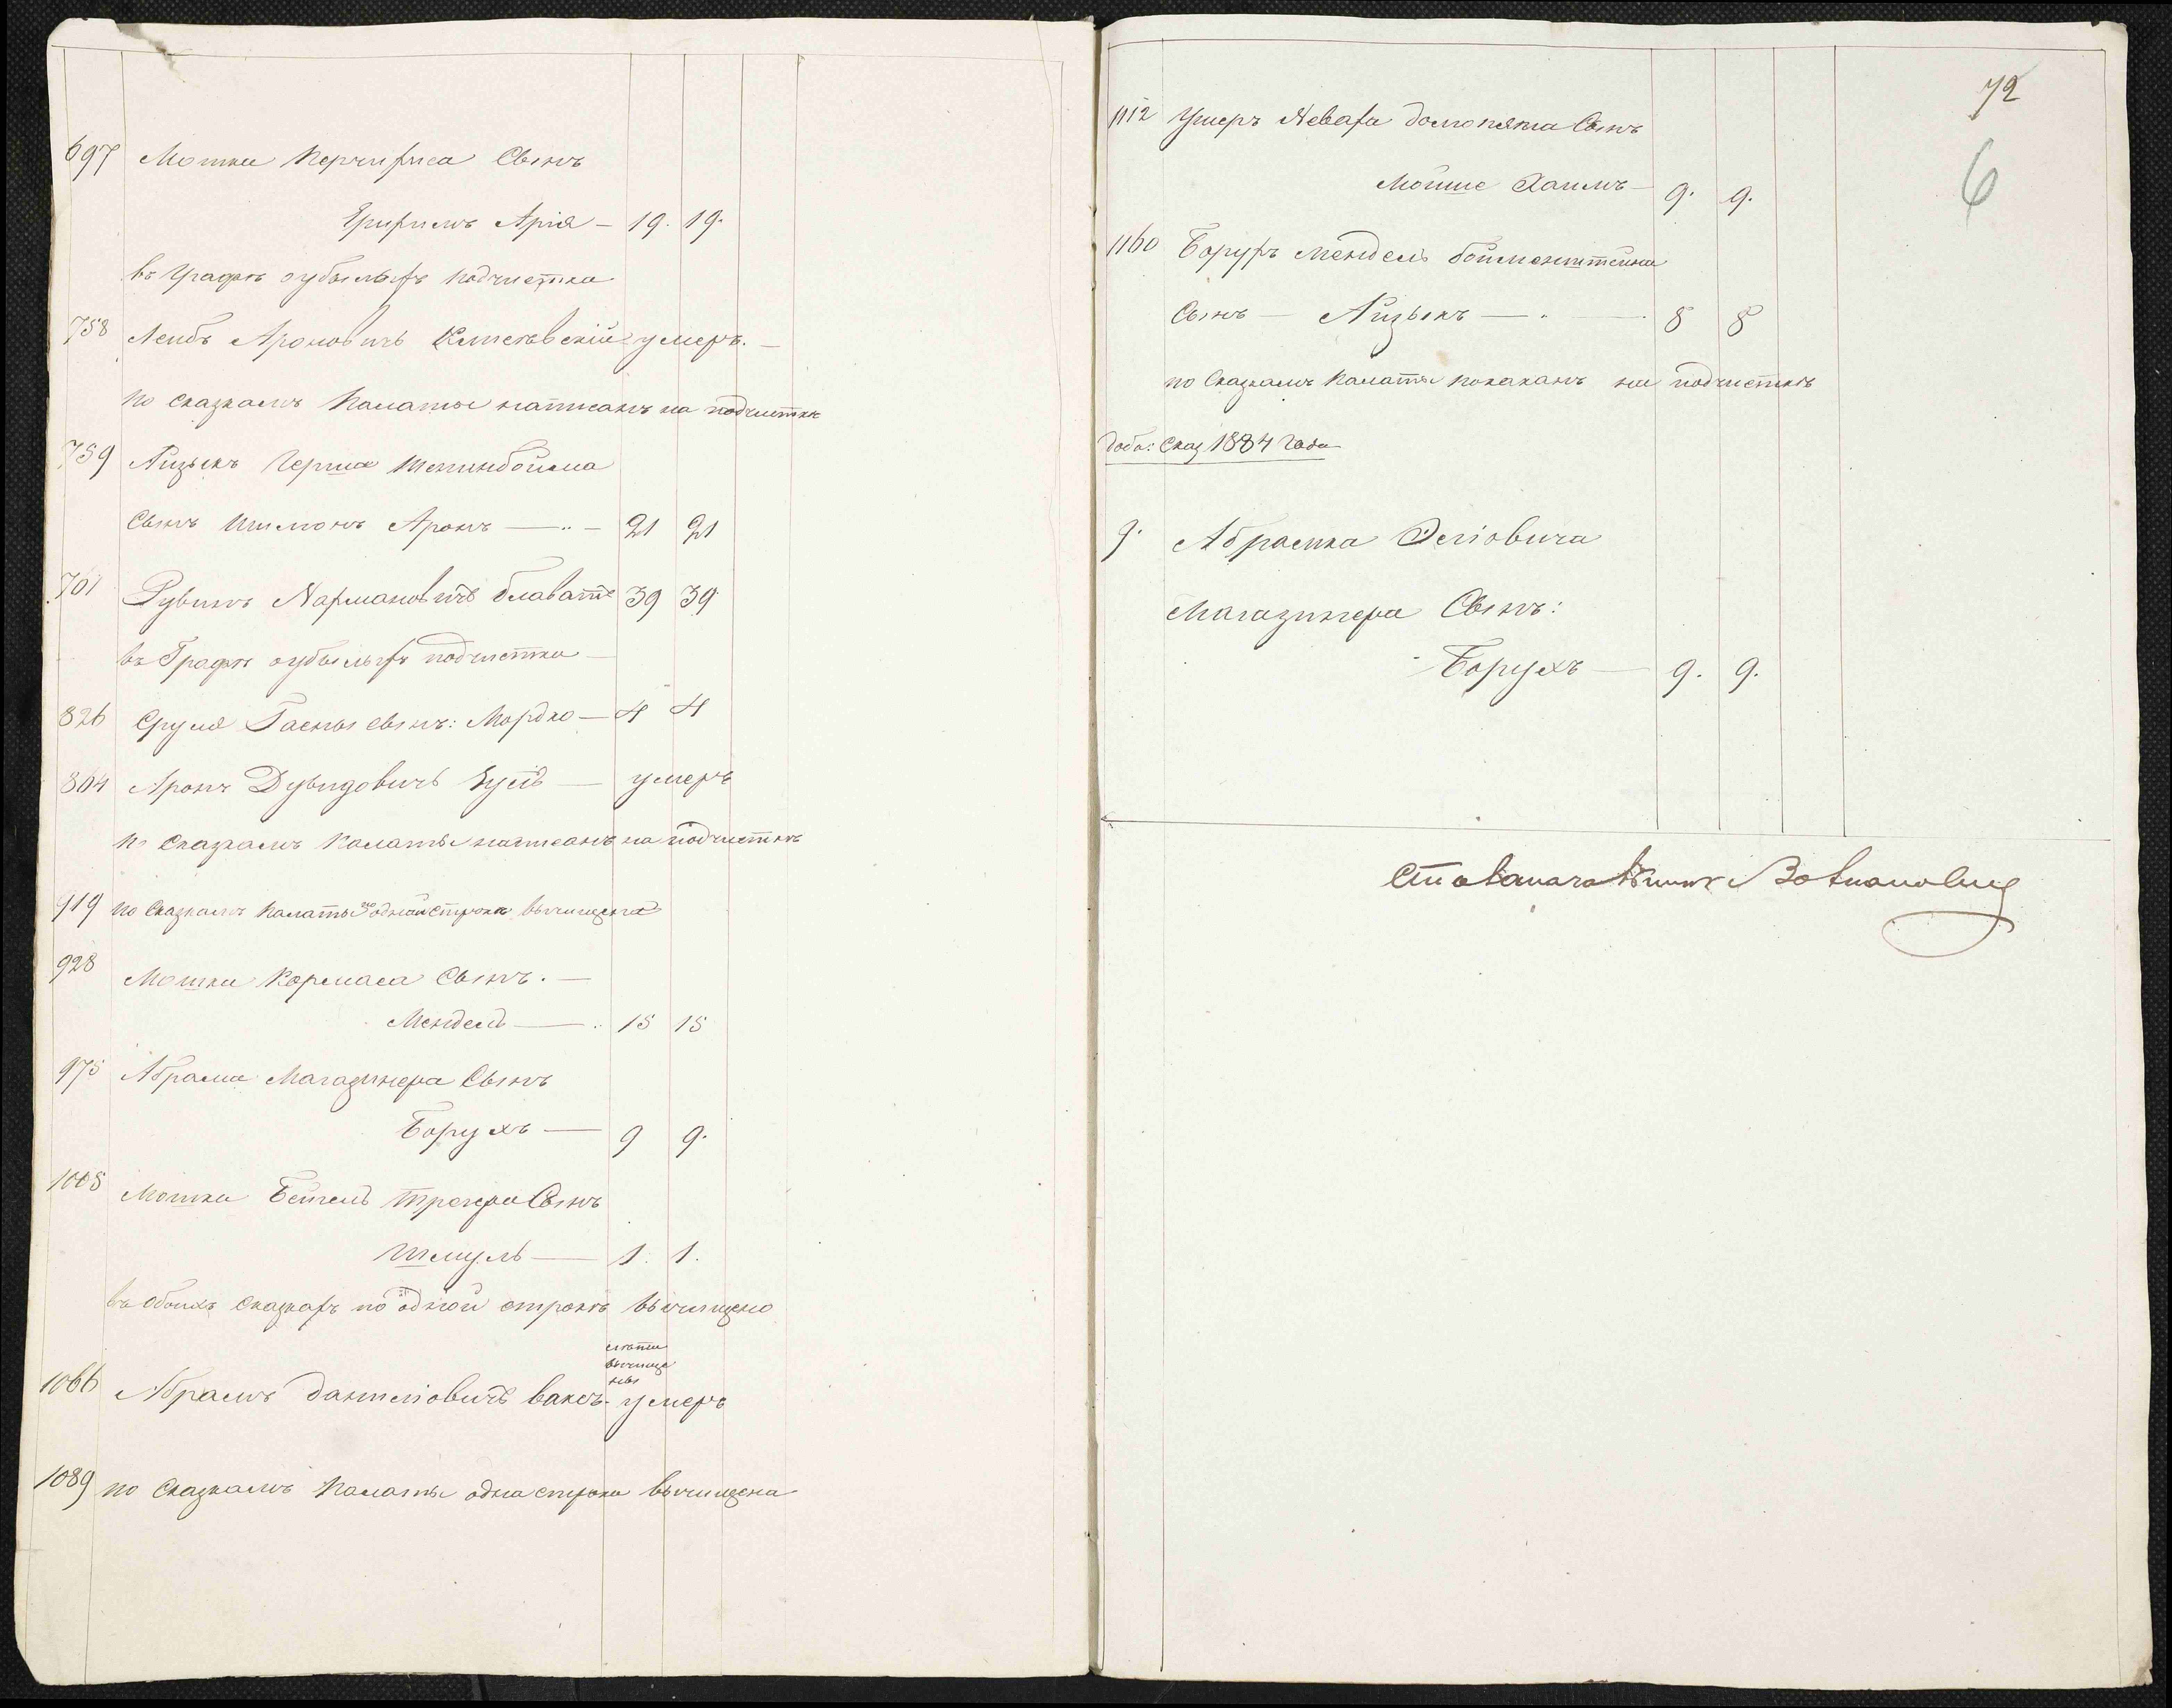 697 Мошки Перчифиса Сынъ
Фрифимъ Арiя — 19. 19.
въ Графѣ оубылыхъ подчистка
758 Лейбъ Ароновичъ умеръ. —
по сказкамъ Палаты написанъ на подчисткѣ
759 Айзыкъ Герша Штейнбойма
Сынъ Шимонъ Аронъ — 21 21
701 Рувинъ Нармановичъ Блаватъ 39 39
въ Графѣ оубылыхъ подчистка —
826 Сруля Гаскы сынъ: Мордко — 4 4
864 Аронъ Дувидовичъ — умеръ
по Сказкамъ Палаты написанъ на подчисткѣ
919 по Сказкамъ Палаты одной строка вычищена
928 Мошки Кормаса Сынъ. —
Мендель — 15 15
975 Абрама Магазинера Сынъ
Борухъ — 9 9.
1005 Мошки Бейтель Трегера Сынъ
Шмуль — 1. 1.
въ обоихъ сказкахъ по одной строкѣ вычищено
лѣты
вычище
ны
1066 Абрамъ Данилiовичъ Ваксъ. умеръ
1089 по Сказкамъ Палаты одна строка вычищена
72
6
1112 Умеръ Невахи Домоняка Сынъ
Мойше Хаимъ — 9. 9.
1160 Борухъ Мендель Боймонштейна
Сынъ — Айзыкъ — 8 8
по Сказкамъ Палаты показанъ на подчисткѣ
Допо: Сказ 1884 года
9. Абрамка Элiовича
Магазинера Сынъ:
Борухъ — 9. 9.
Столоначальникъ